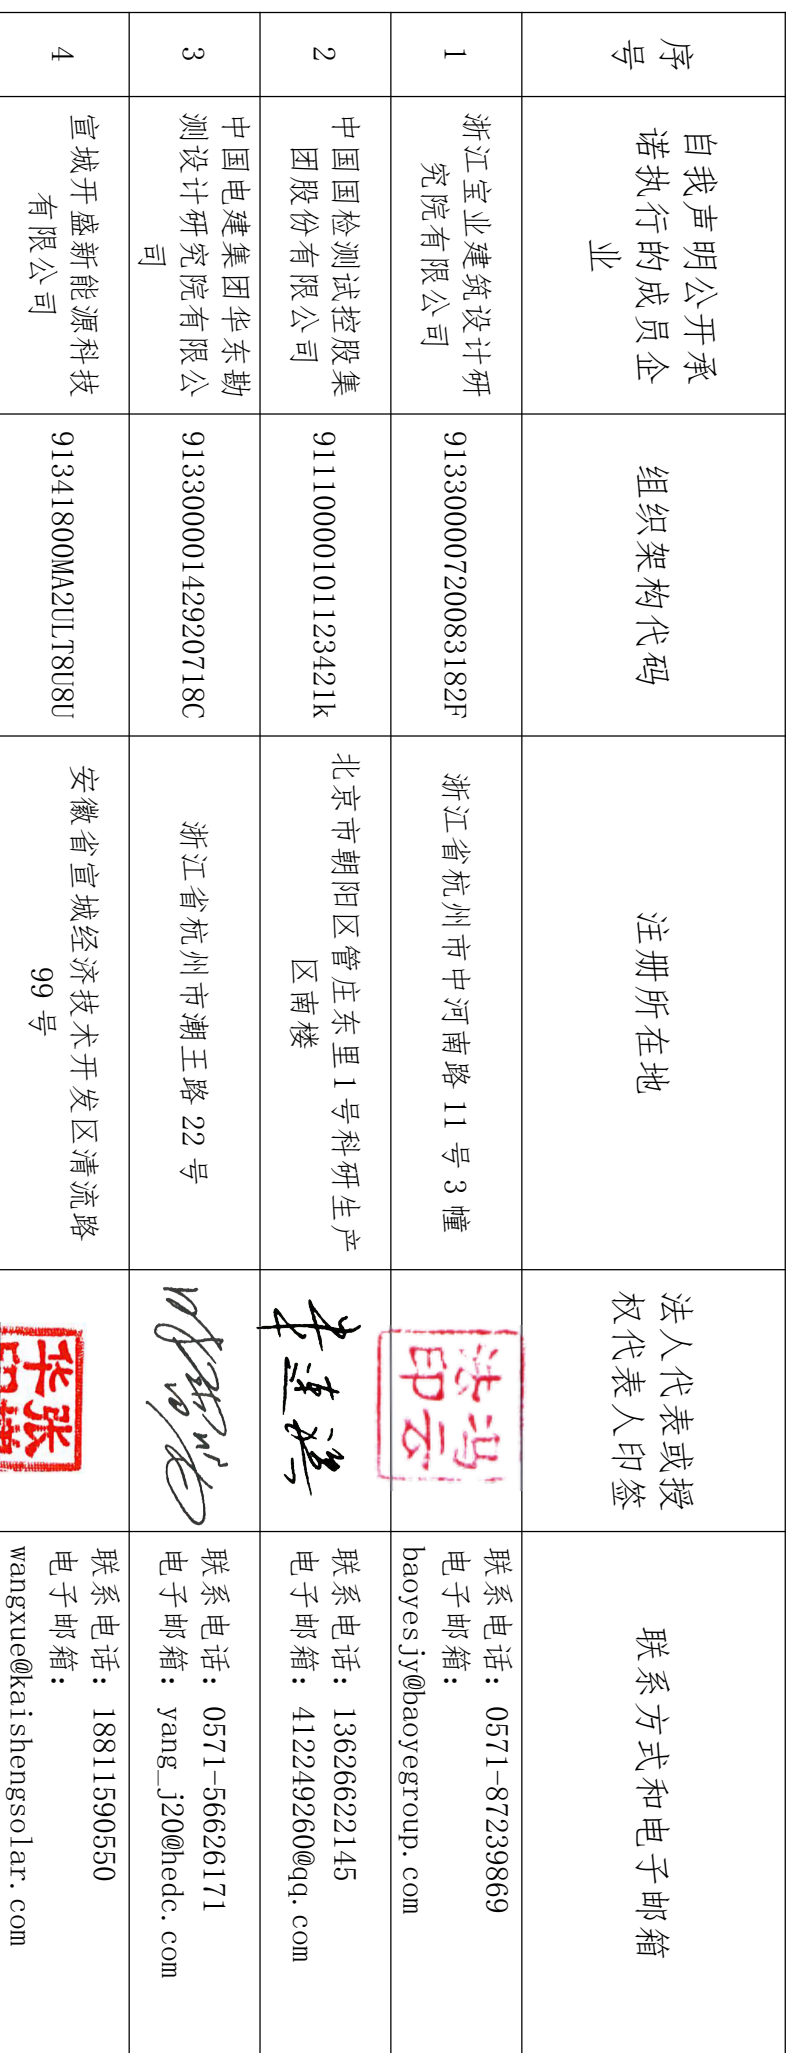 序
号
自我声明公开承
诺执行的成员企
业
组织架构代码
注册所在地
法人代表或授
权代表人印签
联系方式和电子邮箱
1
浙江宝业建筑设计研
究院有限公司
91330000720083182F
浙江省杭州市中河南路 11 号 3 幢
冯云
法印
联系电话：0571-87239869
电子邮箱：
baoyesjy@baoyegroup.com
2
中国国检测试控股集
团股份有限公司
91110000101123421k
北京市朝阳区管庄东里 1 号科研生产
区南楼
联系电话：13626622145
电子邮箱：412249260@qq.com
3
中国电建集团华东勘
测设计研究院有限公
司
91330000142920718C
浙江省杭州市潮王路 22 号
联系电话：0571-56626171
电子邮箱：yang_j20@hedc.com
4
宣城开盛新能源科技
有限公司
91341800MA2ULT8U8U
安徽省宣城经济技术开发区清流路
99 号
联系电话：18811590550
电子邮箱：
wangxue@kaishengsolar.com